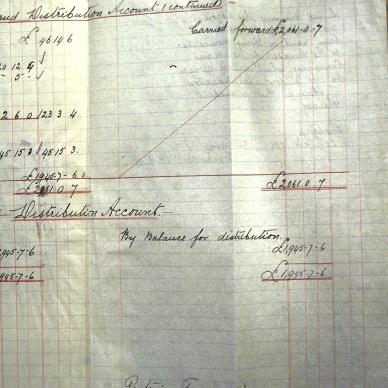 and Distribution Account (continued)
Carried forward £2,061-0-7
£ 46 14 6
2 6 0 123 3 4
45 15 3 45 15 3.
£1945-7-6
£2061 0 7 £2,061-0-7
Distribution Account.
By Balance for distribution.
1,945-7-6 £1,945-7-6
1,945-7-6 £1,945-7-6